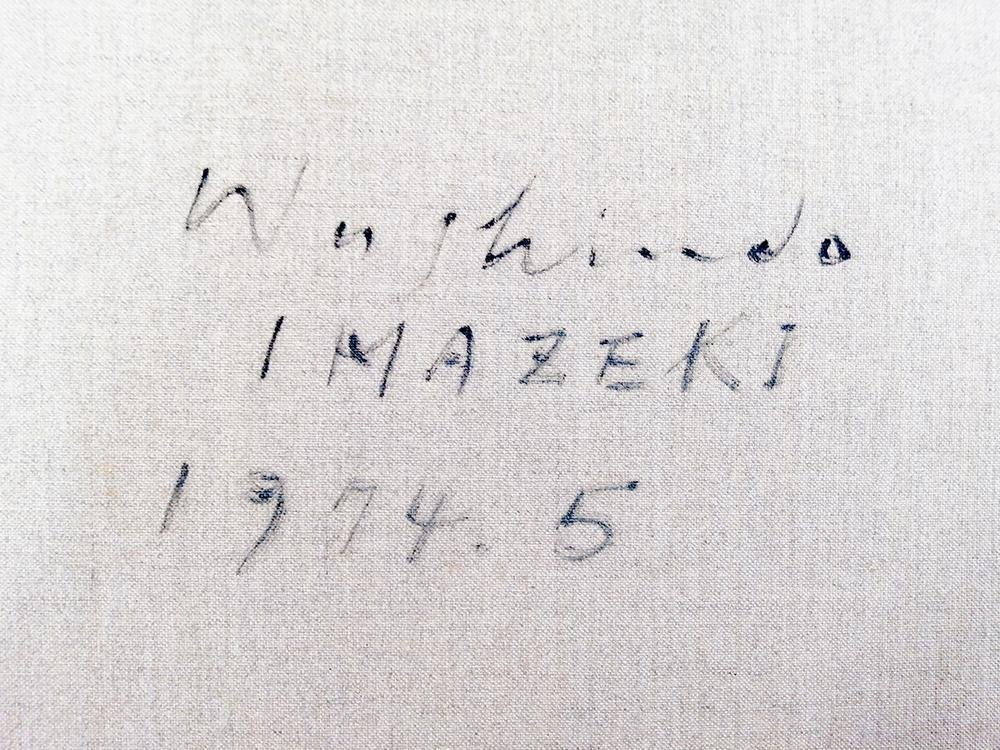 Washindo
IMAZEKI
1974. 5